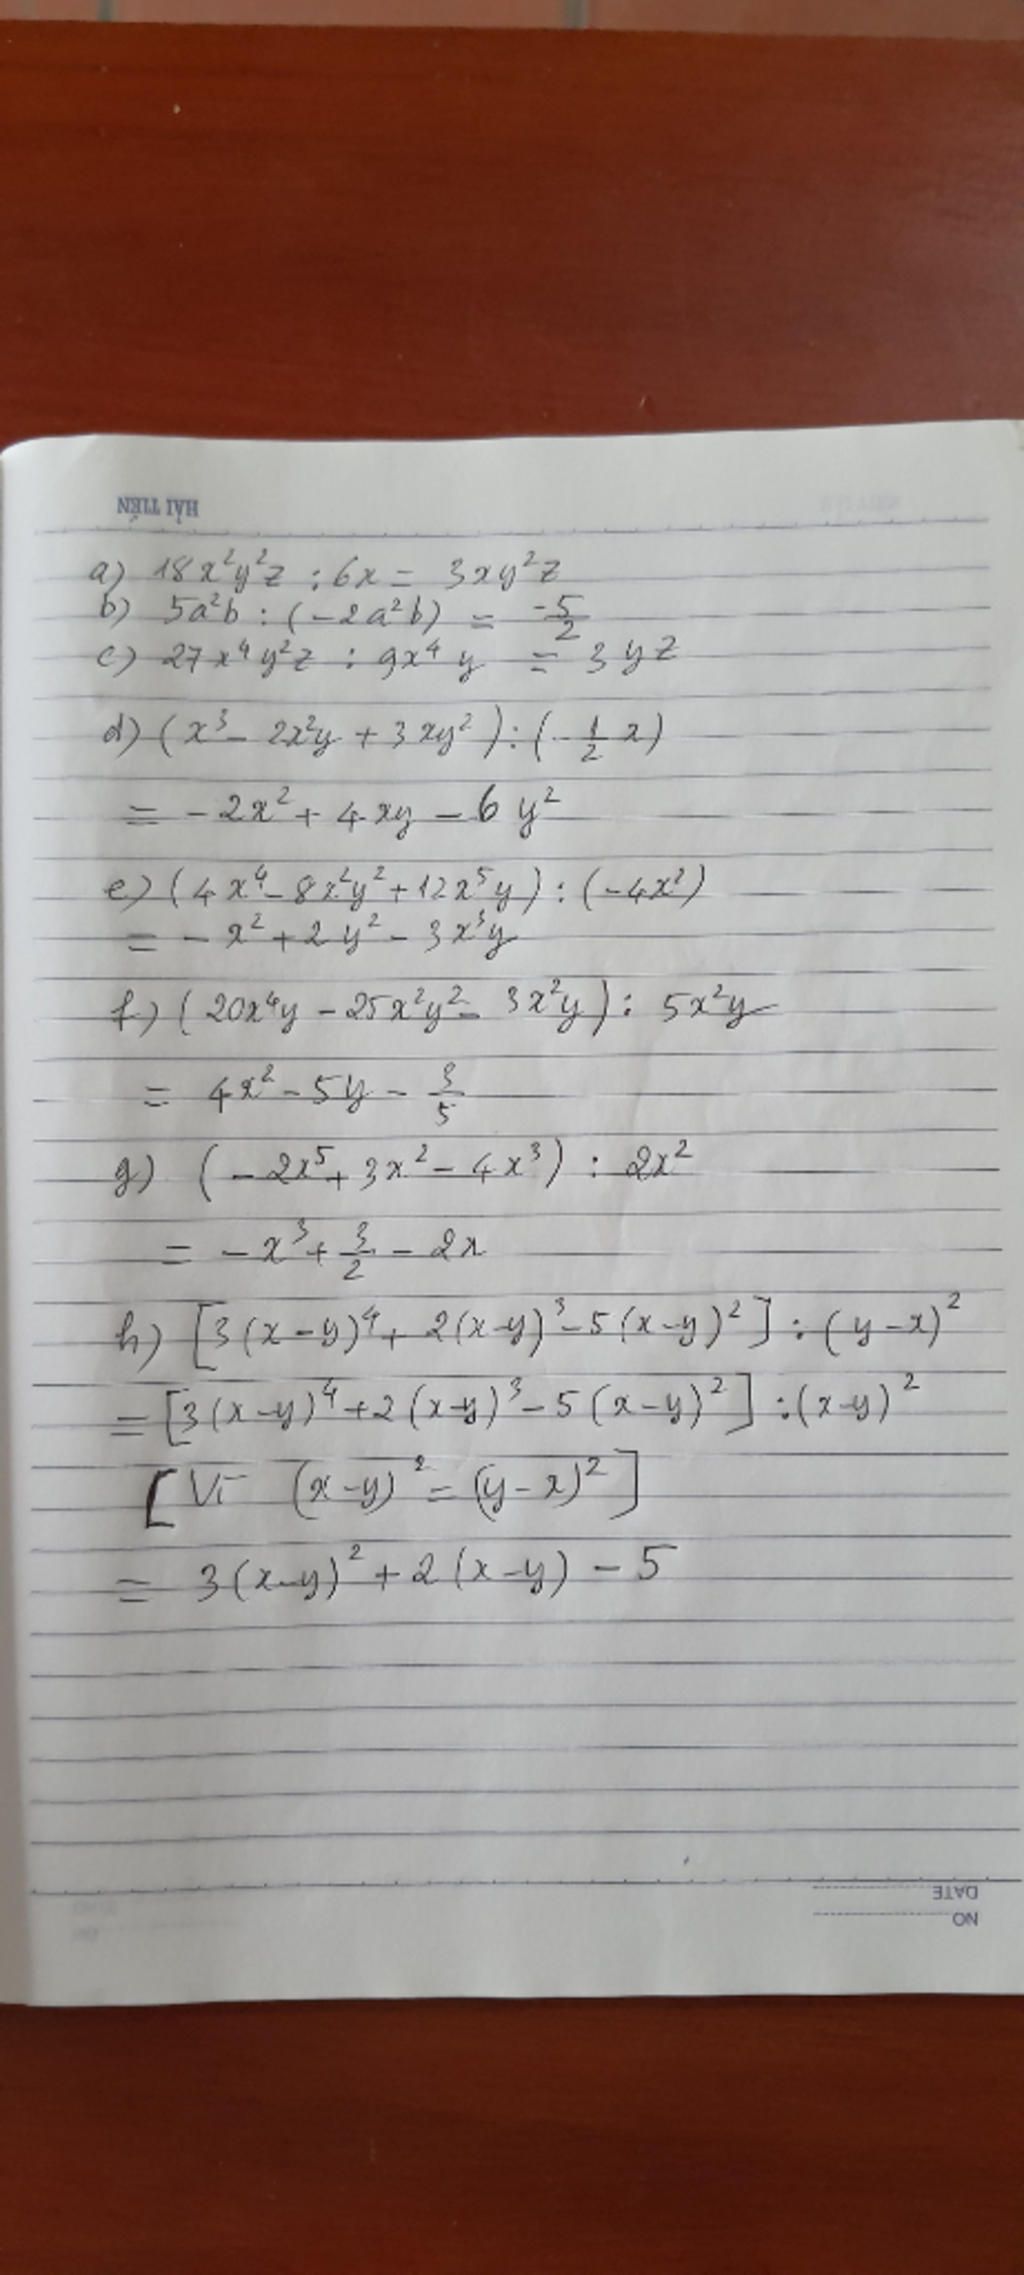 HẢI TIẾN
a) 18x²y²z : 6x = 3xy²z
b) 5a²b : (-2a²b) = -5/2
c) 27x⁴y²z : 9x⁴y = 3yz
d) (x³ - 2x²y + 3xy²) : (-1/2 x)
= -2x² + 4xy - 6y²
e) (4x⁴ - 8x²y² + 12x⁵y) : (-4x²)
= -x² + 2y² - 3x³y
f) (20x⁴y - 25x²y² - 3x²y) : 5x²y
= 4x² - 5y - 3/5
g) (-2x⁵ + 3x² - 4x³) : 2x²
= -x³ + 3/2 - 2x
h) [3(x-y)⁴ + 2(x-y)³ - 5(x-y)²] : (y-x)²
= [3(x-y)⁴ + 2(x-y)³ - 5(x-y)²] : (x-y)²
[Vì (x-y)² = (y-x)²]
= 3(x-y)² + 2(x-y) - 5
DATE
NO